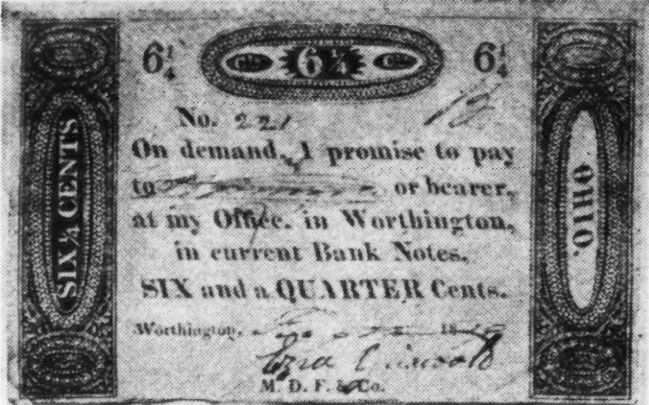 6¼ 6¼ 6¼
SIX ¼ CENTS
No. 221
On demand, I promise to pay
to or bearer,
at my Office, in Worthington,
in current Bank Notes,
SIX and a QUARTER Cents.
Worthington, 18
Ezra Griswold
M. D. F. & Co.
OHIO.